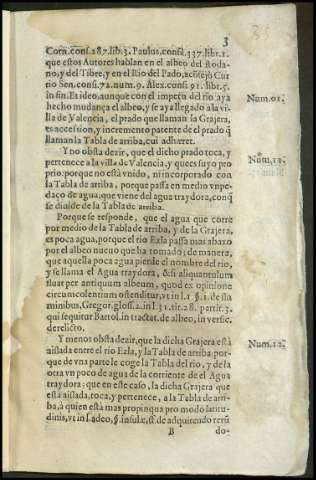 3
Corn. cons. 287. lib. 3. Paulus. cons. 337. libr. 1.
que estos Autores hablan en el albeo del Roda-
no, y del Tibre, y en el Rio del Pado,
Sen. cons. 72. num. 9. Alex. cons. 91. lib. 5.
in fin. Et ideo, aunque con el impetu del rio aya
hecho mudança el albeo, y se ay allegado a la vi-
lla de Valencia, el prado que llaman la Grajera,
es accession, y incremento patente de el prado q̃
llaman la Tabla de arriba, cui adhæret.
Y no obsta dezir, que el dicho prado toca, y
pertenece a la villa de Valencia, y que es suyo pro
prio, porque no està vnido, ni incorporado con
la Tabla de arriba, porque passa en medio vn pe-
daço de agua, que viene del agua traydora, con q̃
se diuide de la Tabla de arriba.
Porque se responde, que el agua que corre
por medio de la Tabla de arriba, y de la Grajera,
es poca agua, porque el rio Ezla passa mas abaxo
por el albeo nueuo que ha tomado; de manera,
que aquella poca agua pierde el nombre del rio,
y se llama el Agua traydora, & si aliquantulum
fluat per antiquum albeum, quod ex opinione
circumcolentium ostenditur, vt in l. 1. §. 1. de flu
minibus, Gregor. gloss. 2. in l. 31. tit. 28. partit. 3.
qui sequitur Bartol. in tractat. de albeo, in versic.
derelicto.
Y menos obsta dezir, que la dicha Grajera està
aislada entre el rio Ezla, y la Tabla de arriba por-
que de vna parte le coge la Tabla del rio, y de la
otra vn poco de agua de la corriente de el Agua
traydora: que en este caso, la dicha Grajera que
està aislada, toca, y pertenece, a la Tabla de arri-
ba, à quien està mas propinqua pro modo latitu-
dinis, vt in l. adeo, §. insulæ, ff. de adquirendo rerũ
B do-
Num. 01.
Num. 11.
Num. 12.